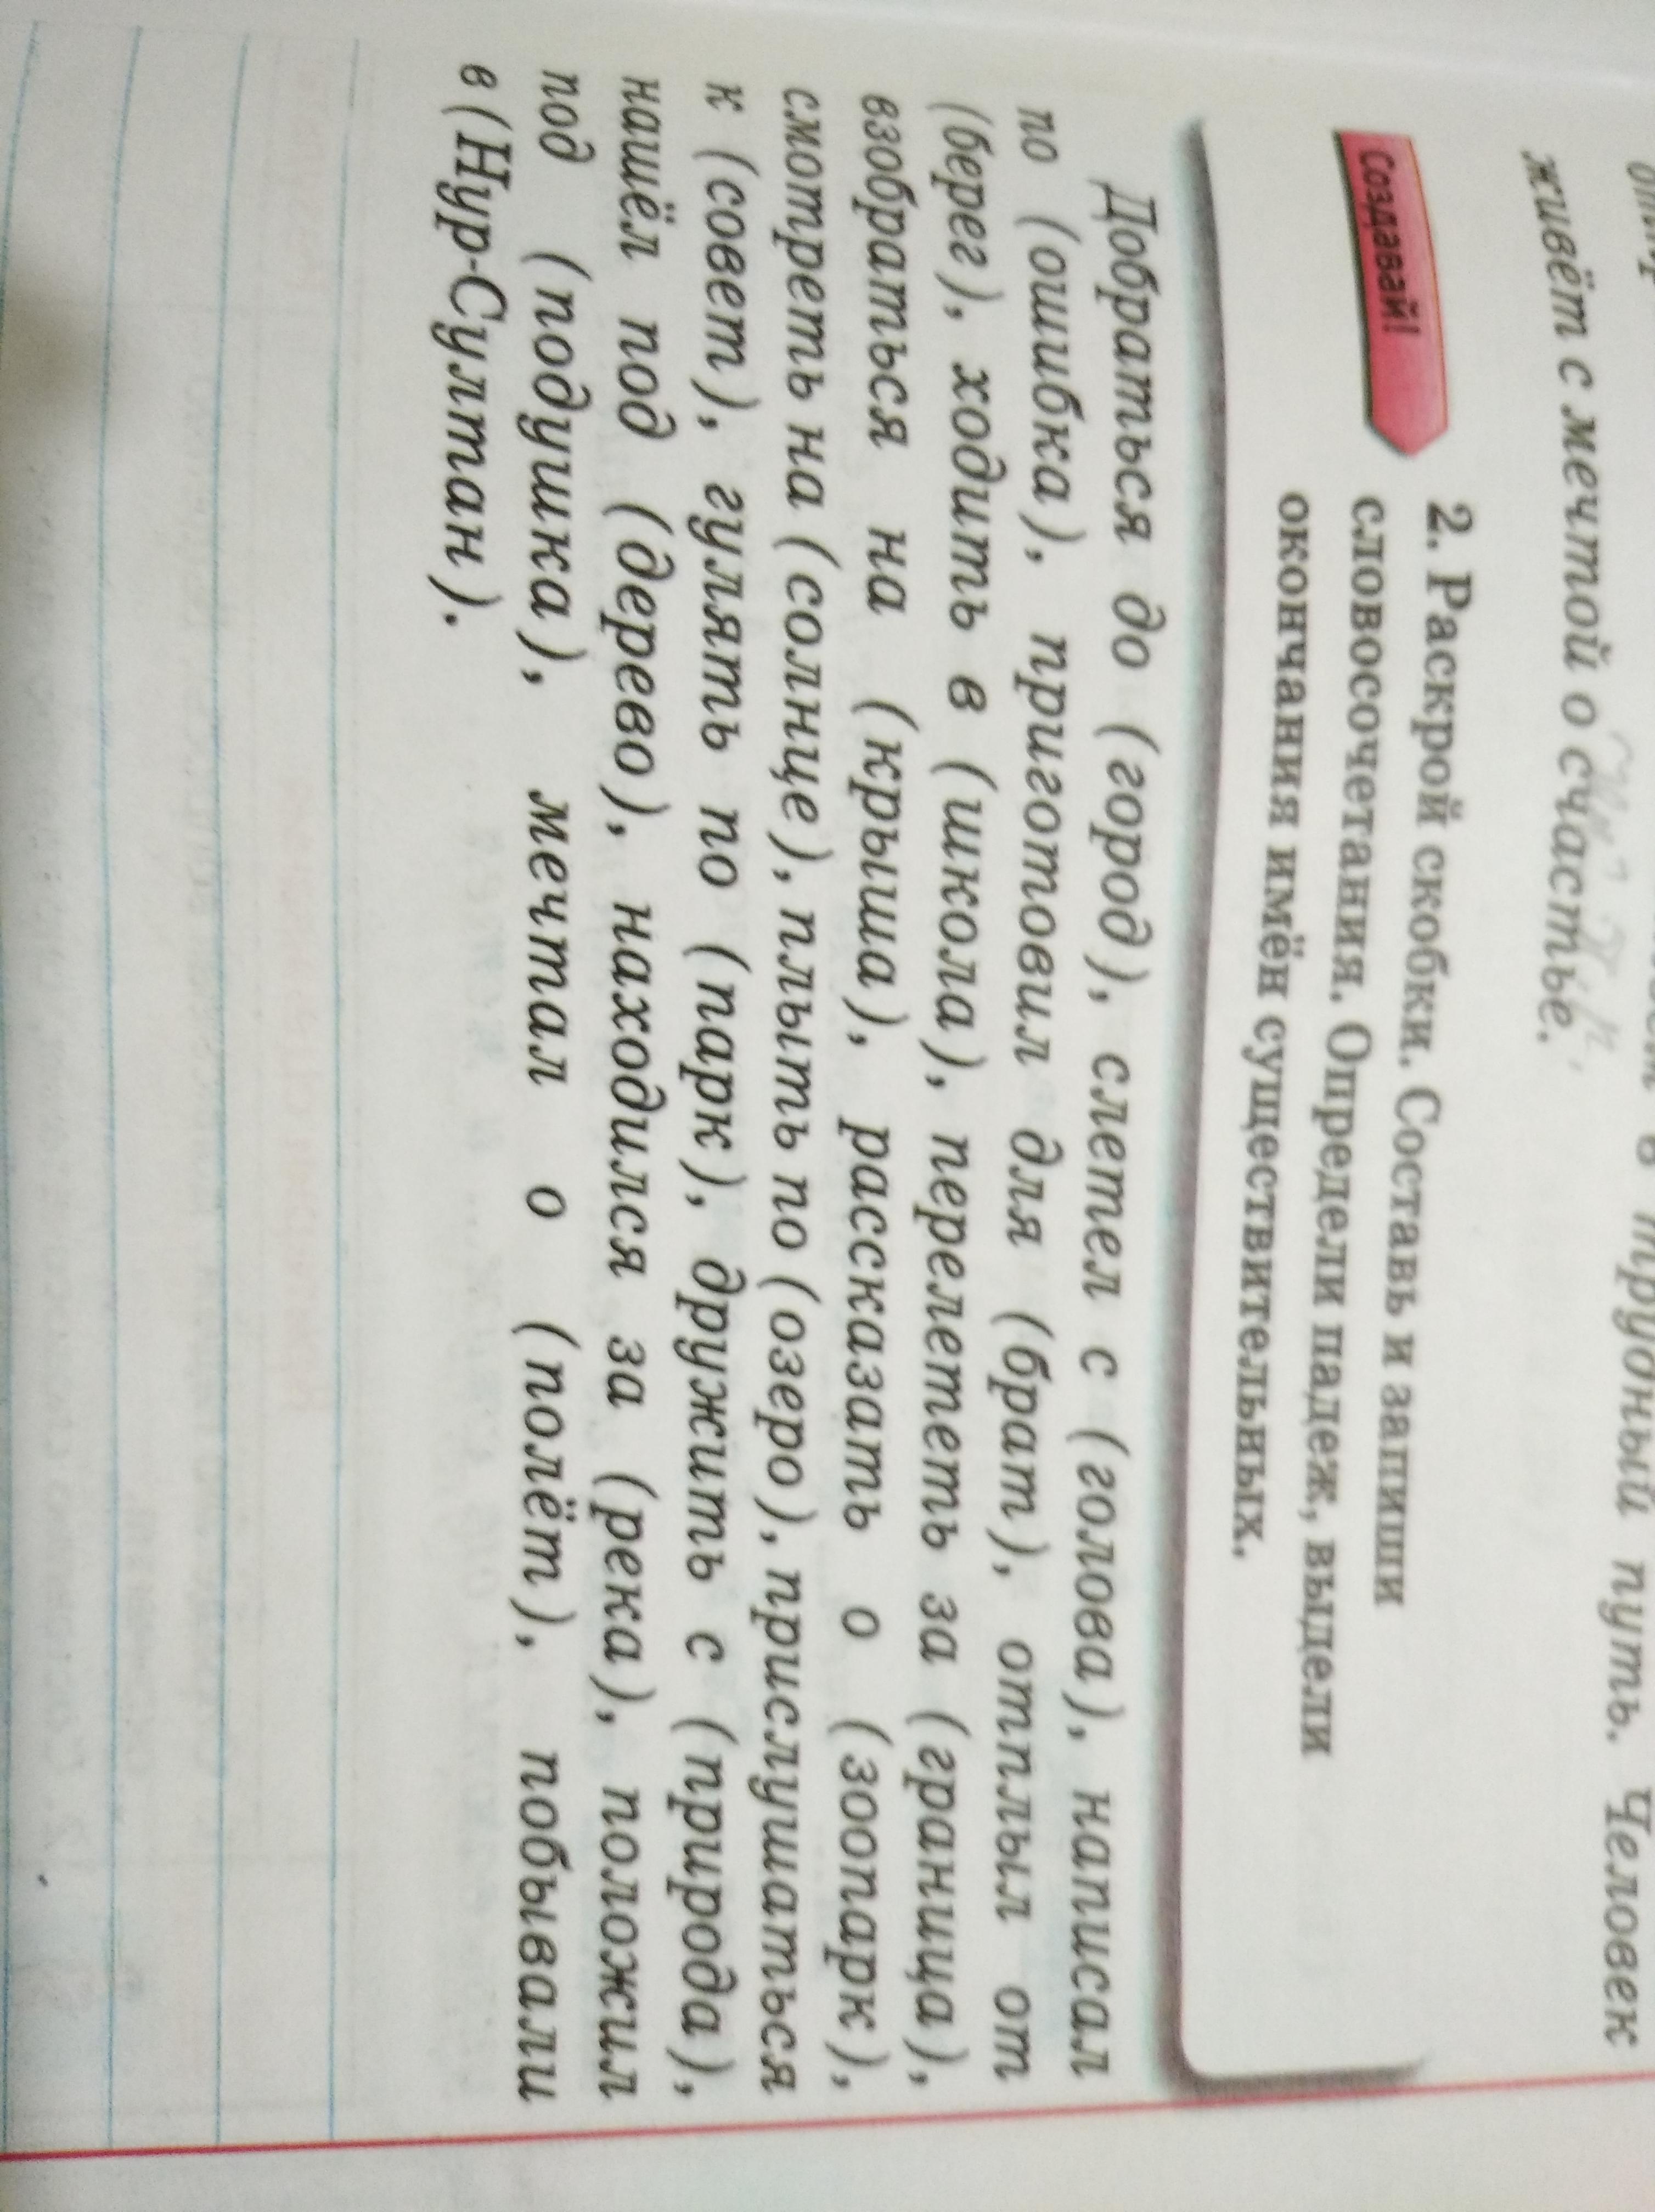 в трудный путь. Человек
живёт с мечтой о счастье.
Создавай!
2. Раскрой скобки. Составь и запиши
словосочетания. Определи падеж, выдели
окончания имён существительных.
Добраться до (город), слетел с (голова), написал
по (ошибка), приготовил для (брат), отплыл от
(берег), ходить в (школа), перелететь за (граница),
взобраться на (крыша), рассказать о (зоопарк),
смотреть на (солнце), плыть по (озеро), прислушаться
к (совет), гулять по (парк), дружить с (природа),
нашёл под (дерево), находился за (река), положил
под (подушка), мечтал о (полёт), побывали
в (Нур-Султан).